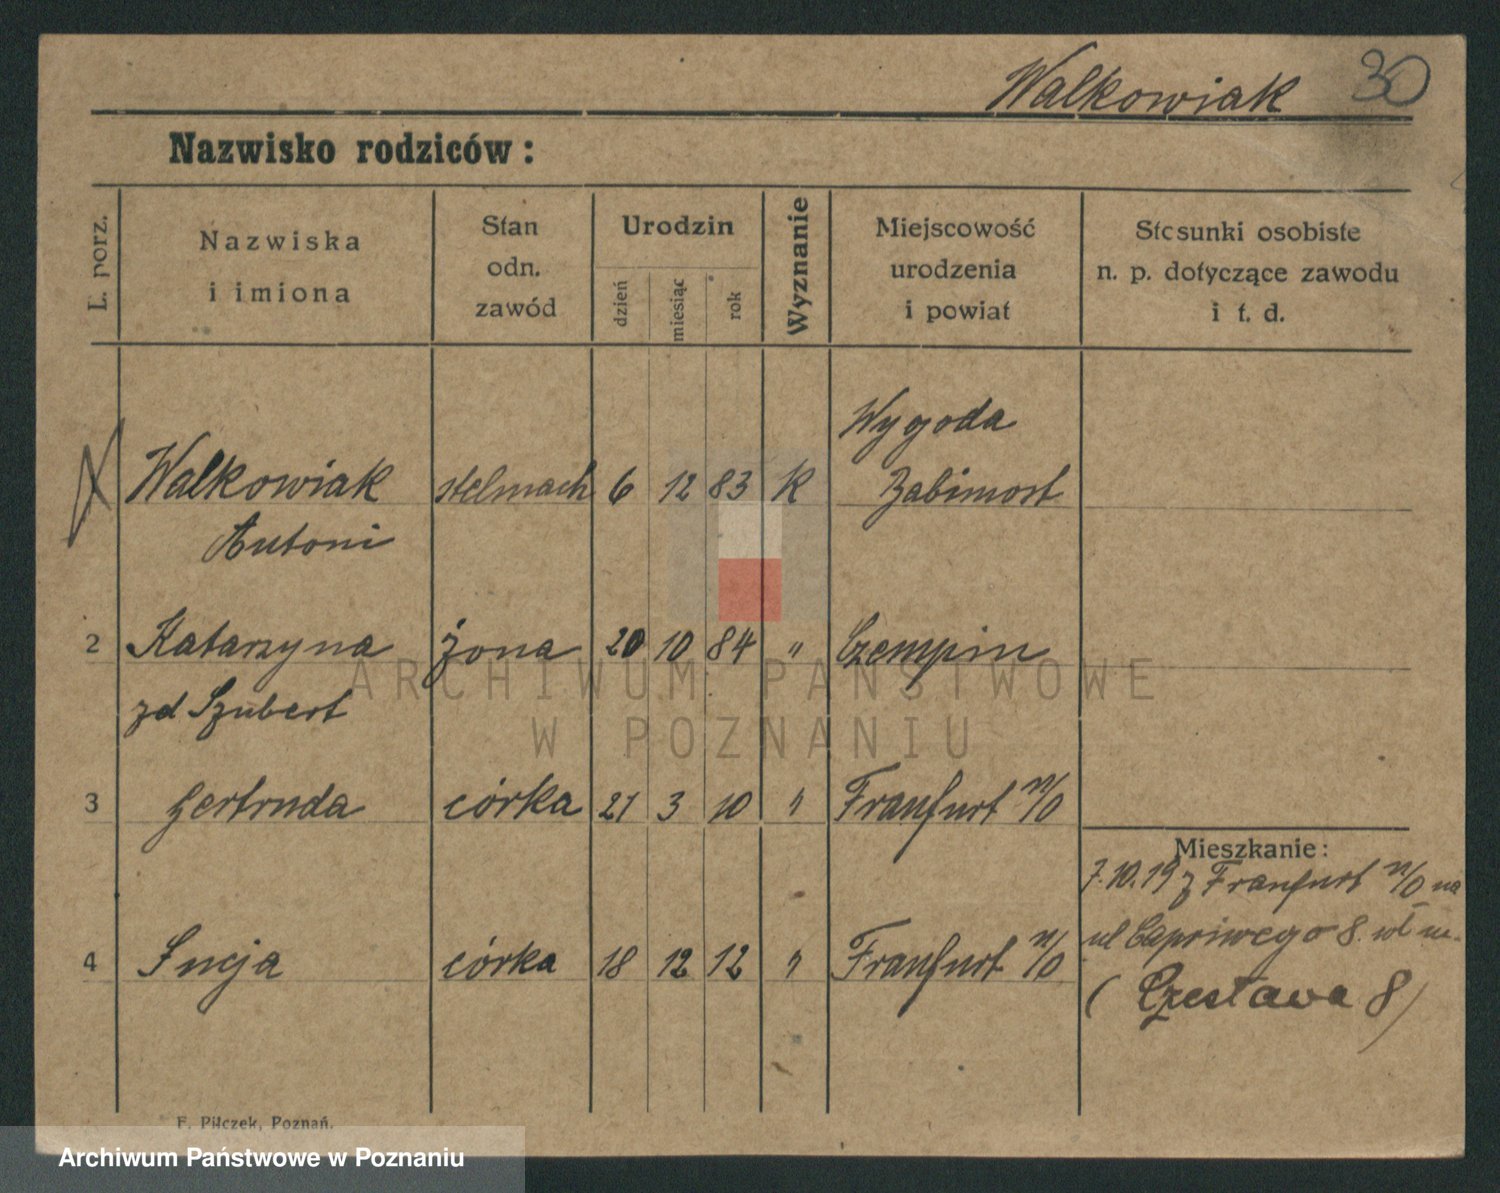 Walkowiak 30
Nazwisko rodziców:
L. porz.
Nazwiska
i imiona
Stan
odn.
zawód
Urodzin
dzień
miesiąc
rok
Wyznanie
Miejscowość
urodzenia
i powiat
Stosunki osobiste
n. p. dotyczące zawodu
i t. d.
Wygoda
Walkowiak stelmach 6 12 83 K Babimost
Antoni
2 Katarzyna żona 20 10 84 " Czempin
zd Szubert
3 Gertruda córka 21 3 10 " Franfurt n/O
Mieszkanie:
7.10.19 z Franfurt n/O na
ul Capriwego 8.
4 Łucja córka 18 12 12 " Franfurt n/O
( Czesława 8 )
F. Pilczek, Poznań.
ARCHIWUM PAŃSTWOWE
W POZNANIU
Archiwum Państwowe w Poznaniu